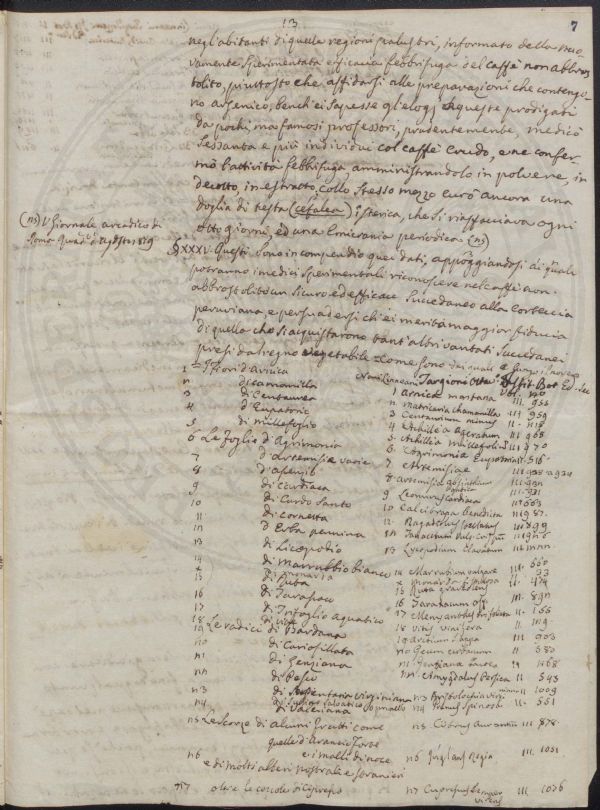 13
7
negl'abitanti di quelle regioni palustri, informato della nuo-
vamente sperimentata efficacia febbrifuga del caffè non abbros
tolito, piuttosto che affidarsi alle preparazioni che contengo-
no arsenico, bench'ei sapesse gl'elogj a queste prodigati
da pochi, ma famosi professori, prudentemente, medicò
sessanta e più individui col caffè crudo, e ne confer-
mò l'attività febbrifuga amministrandolo in polvere, in
decotto, in estratto, collo stesso mezzo curò ancora una
doglia di testa (cefalea) isterica, che si riaffacciava ogni
otto giorni, ed una Emicrania periodica (15)
(15) V Giornale arcadico di
Roma
§XXXIV Questi sono in compendio quei dati, appoggiandosi ai quali
potranno i medici sperimentali riconoscere nel caffè non
abbrostolito un sicuro ed efficace succedaneo alla Corteccia
peruviana, e persuadersi ch'ei merita maggior fiducia
di quella che si acquistarono tant'altri vantati succedanei
presi dal regno vegetabile Come sono
Nomi Linneani Targioni Ottav Istit Bot Ed. sec
1 I fiori d'Arnica 1 Arnica montana III. 954
2 di camomilla 2 Matricaria chamomilla III 959
3 di Centaurea 3 Centaurium minus II.
4 d'Eupatorio 4 Achillea Ageratum III 968
5 di millefoglio 5 Achillea millefolium III 970
6 Le foglie d'Agrimonia 6 Agrimonia Eupatoria II 516
7 d'Artemisie varie 7 Artemisiae III
8 d'assenzio 8 Artemisia absinthium III
9 di Cardiaca 9 Leonurus cardiaca
10 di Cardo Santo 10 benedicta III 987
11 di cornetta
12 d'Erba pennina
13 di Licopodio 13 Lycopodium clavatum
14 di Marrubbio bianco 14 Marrubium vulgare III. 660
di Monarda Monarda
15 di Ruta 15 Ruta graveolens II 474
16 di Tarassaco 16 Taraxacum off.
17 di Trifoglio aquatico 17 Menyanthes trifoliata II. 166
18 di vite 18 Vitis vinifera II
19 Le radici di Bardana 19 Arctium Lappa III. 903
20 di Cariofillata 20 Geum urbanum II 580
21 di Genziana 21 Gentiana Lutea
22 di Pesco 22 Amygdalus Persica II 543
23 di Serpentaria virginiana 23 Aristolochia virginiana III 1009
24 di Susino salvatico 24 Prunus spinosa II. 551
di Valeriana
25 Le scorze di alcuni frutti come 25 Citrus Aurantium III 878.
quelle d'Arancio forte
26 e i malli di noce 26 Juglans Regia III. 1051
e di molti alberi nostrali e stranieri
27 oltre le coccole di Cipresso 27 Cupressus semper III. 1076
virens